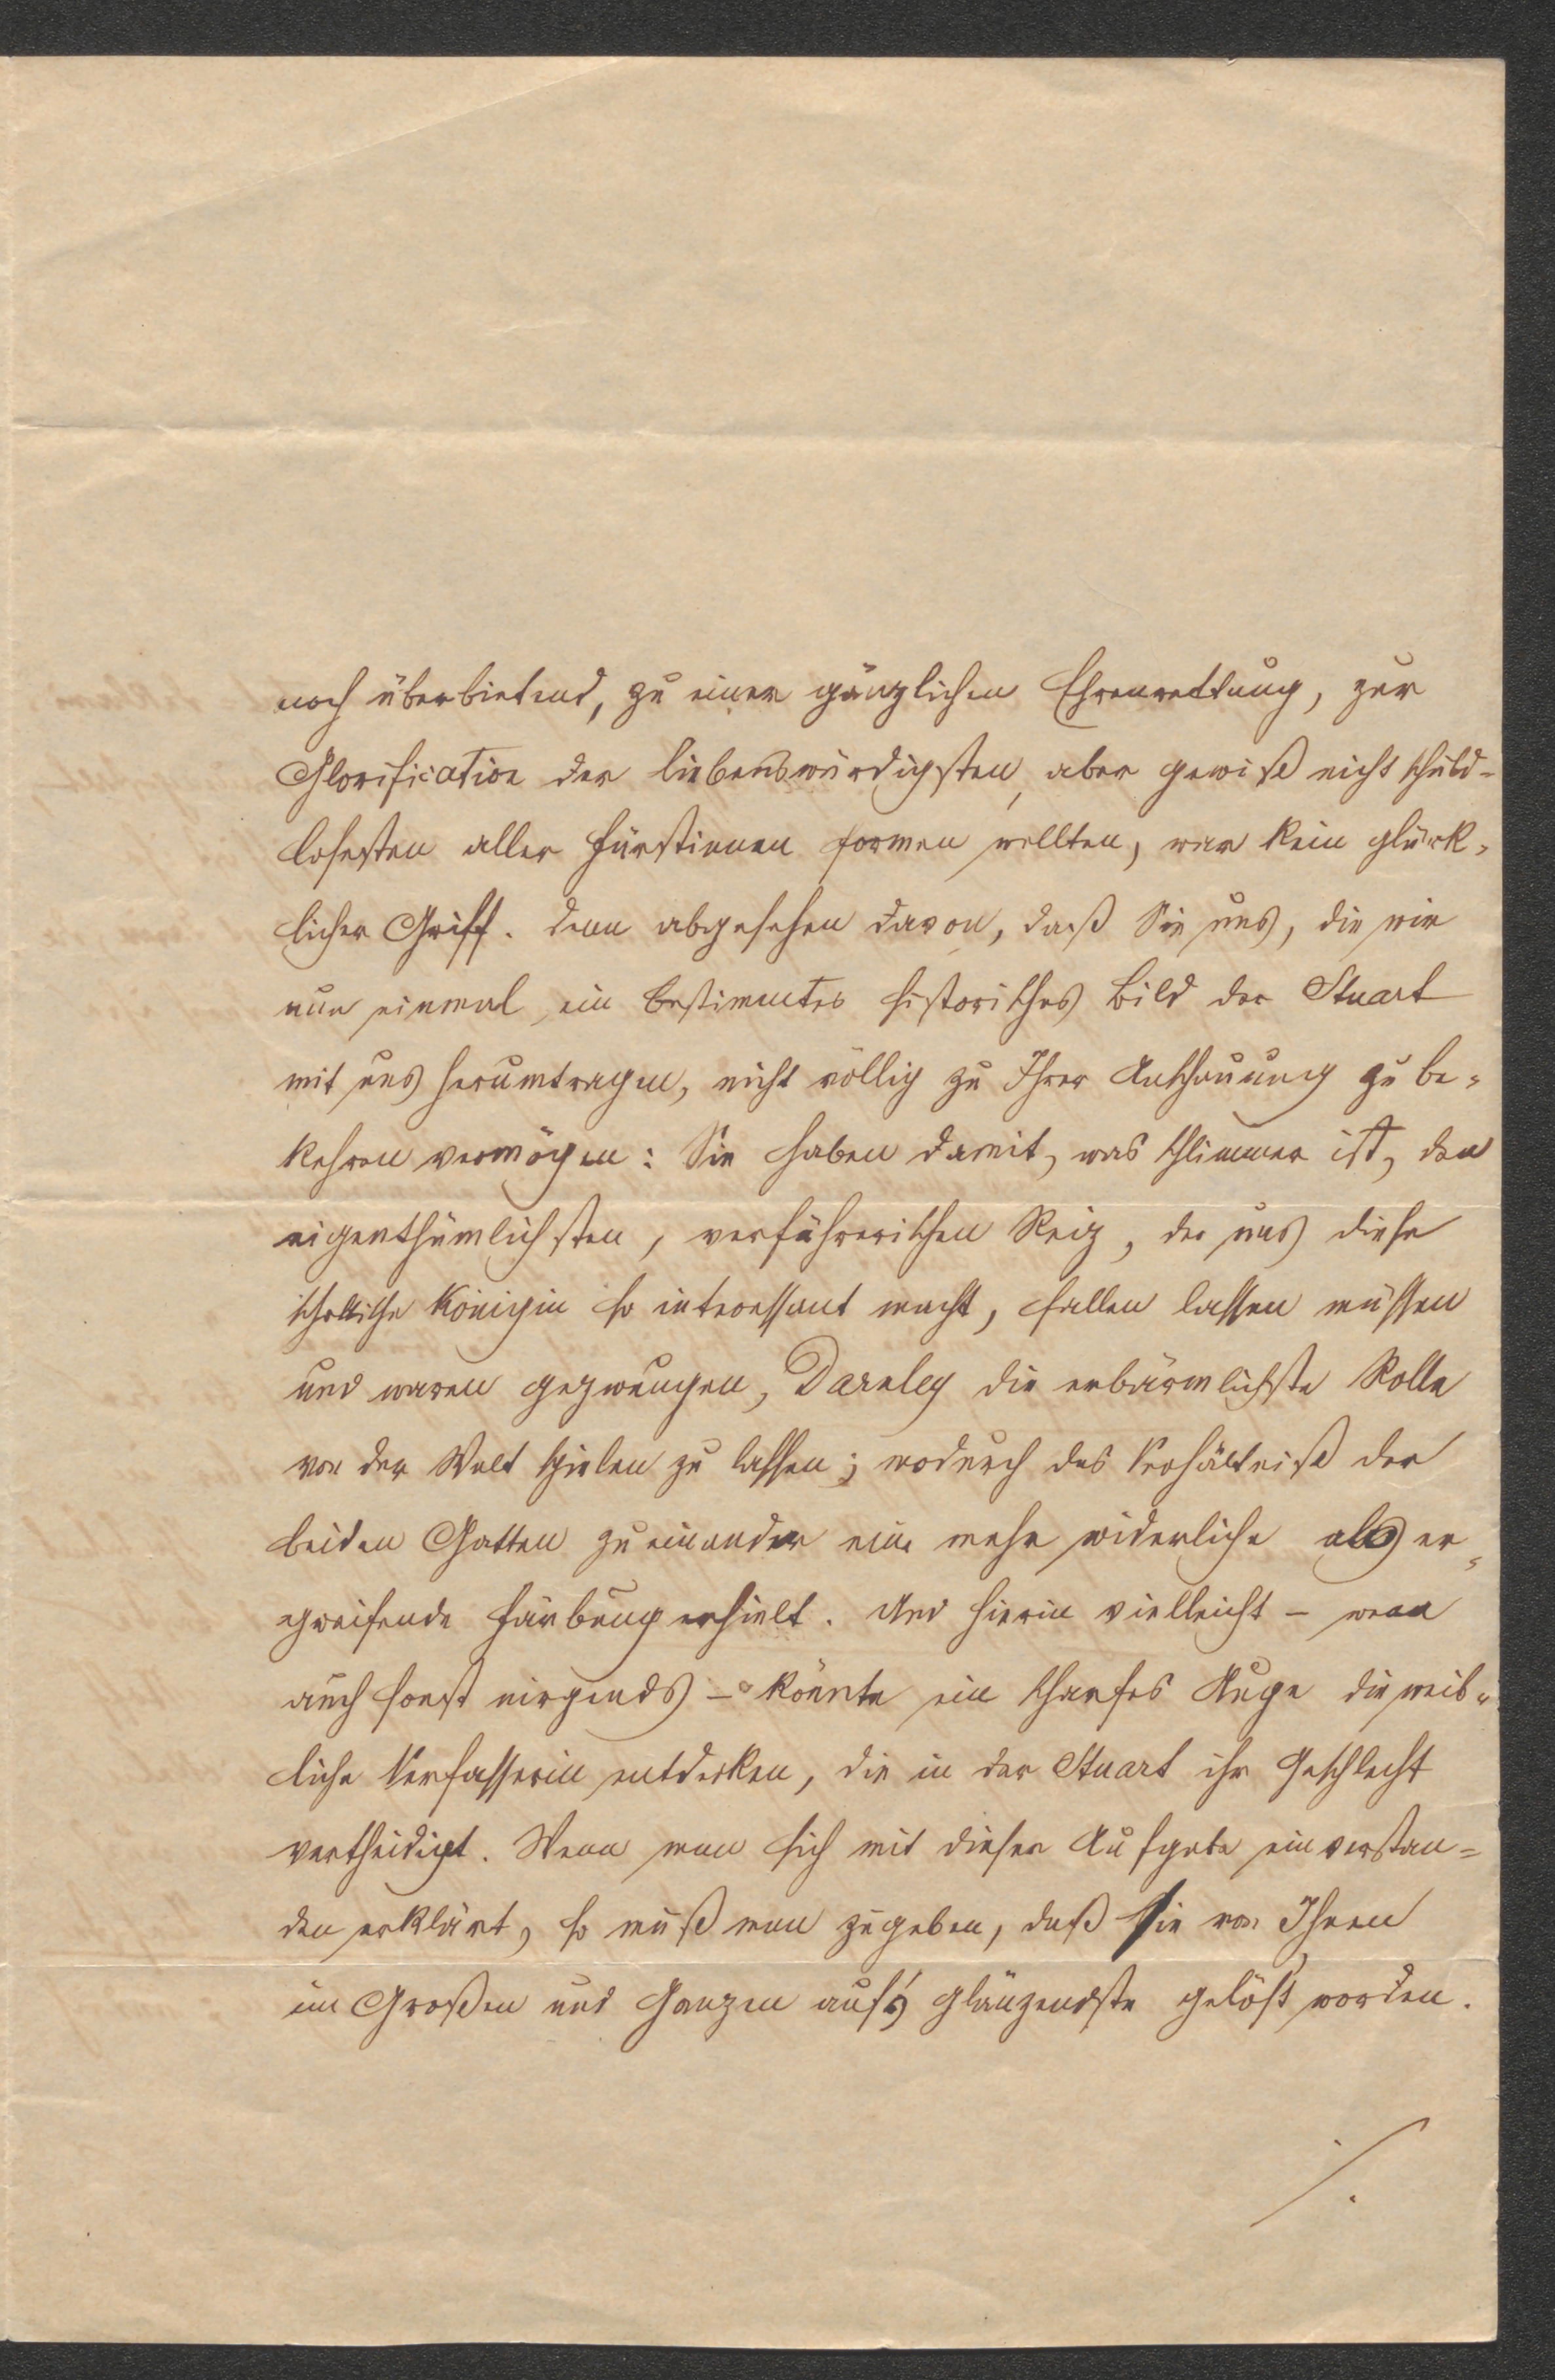 noch überbietend, zu einer gänzlichen Ehrenrettung, zur
Glorification der liebenswürdigsten, aber gewiß nicht schuld-
losesten aller Fürstinnen formen wollten, war kein glück-
licher Griff. Denn abgesehen davon, daß Sie uns, die wir
nun einmal ein bestimmtes historisches Bild der Stuart
mit uns herumtragen, nicht völlig zu Ihrer Anschauung zu be-
kehren vermögen: Sie haben damit, was schlimmer ist, den
eigenthümlichsten, verführerischen Reiz, der uns diese
schottische Königin so interessant macht, fallen lassen müssen
und waren gezwungen, Darnley die erbärmlichste Rolle
von der Welt spielen zu lassen; wodurch das Verhältniß der
beiden Gatten zu einander eine mehr widerliche als er-
greifende Färbung erhielt. Und hierin vielleicht – wenn
auch sonst nirgends – könnte ein scharfes Auge die weib-
liche Verfasserin entdecken, die in der Stuart ihr Geschlecht
vertheidigt. Wenn man sich mit dieser Aufgabe einverstan-
den erklärt, so muß man zugeben, daß sie von Ihnen
im Großen und Ganzen auf's glänzendste gelöst worden.
./.